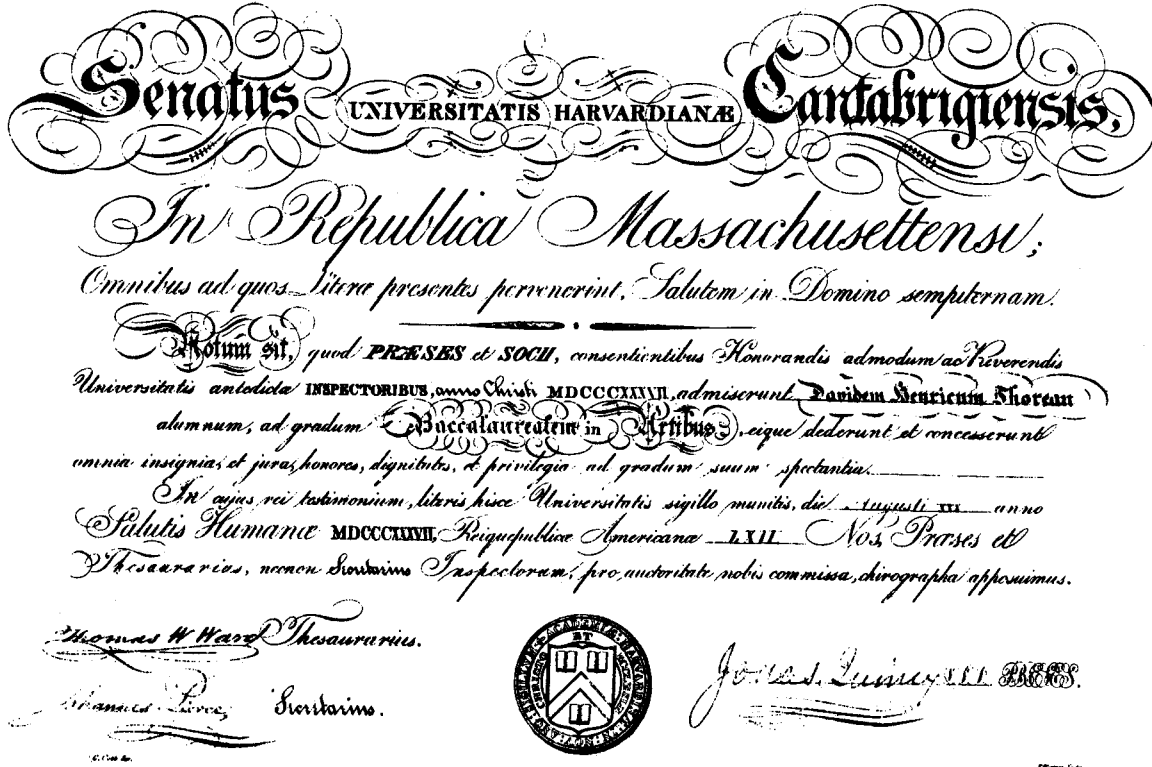 Senatus UNIVERSITATIS HARVARDIANÆ Cantabrigiensis,
In Republica Massachusettensi;
Omnibus ad quos literæ presentes pervenerint, Salutem in Domino sempiternam.
Notum sit, quod PRÆSES et SOCII, consentientibus Honorandis admodum ac Reverendis
Universitatis antedictæ INSPECTORIBUS, anno Christi MDCCCXXXVII, admiserunt Davidem Henricum Thoreau
alumnum, ad gradum Baccalaureatem in Artibus, eique dederunt et concesserunt
omnia insignia, et jura, honores, dignitates, et privilegia ad gradum suum spectantia.
In cujus rei testimonium, literis hisce Universitatis sigillo munitis, die Augusti XXX anno
Salutis Humanæ MDCCCXXXVII, Reiquepublicæ Americanæ LXII Nos, Præses et
Thesaurarius, necnon Secretarius Inspectorum, pro auctoritate nobis commissa, chirographa apposuimus.
Thomas W Ward Thesaurarius.
Pierce, Secretarius.
ET
Quincy PRÆSES.